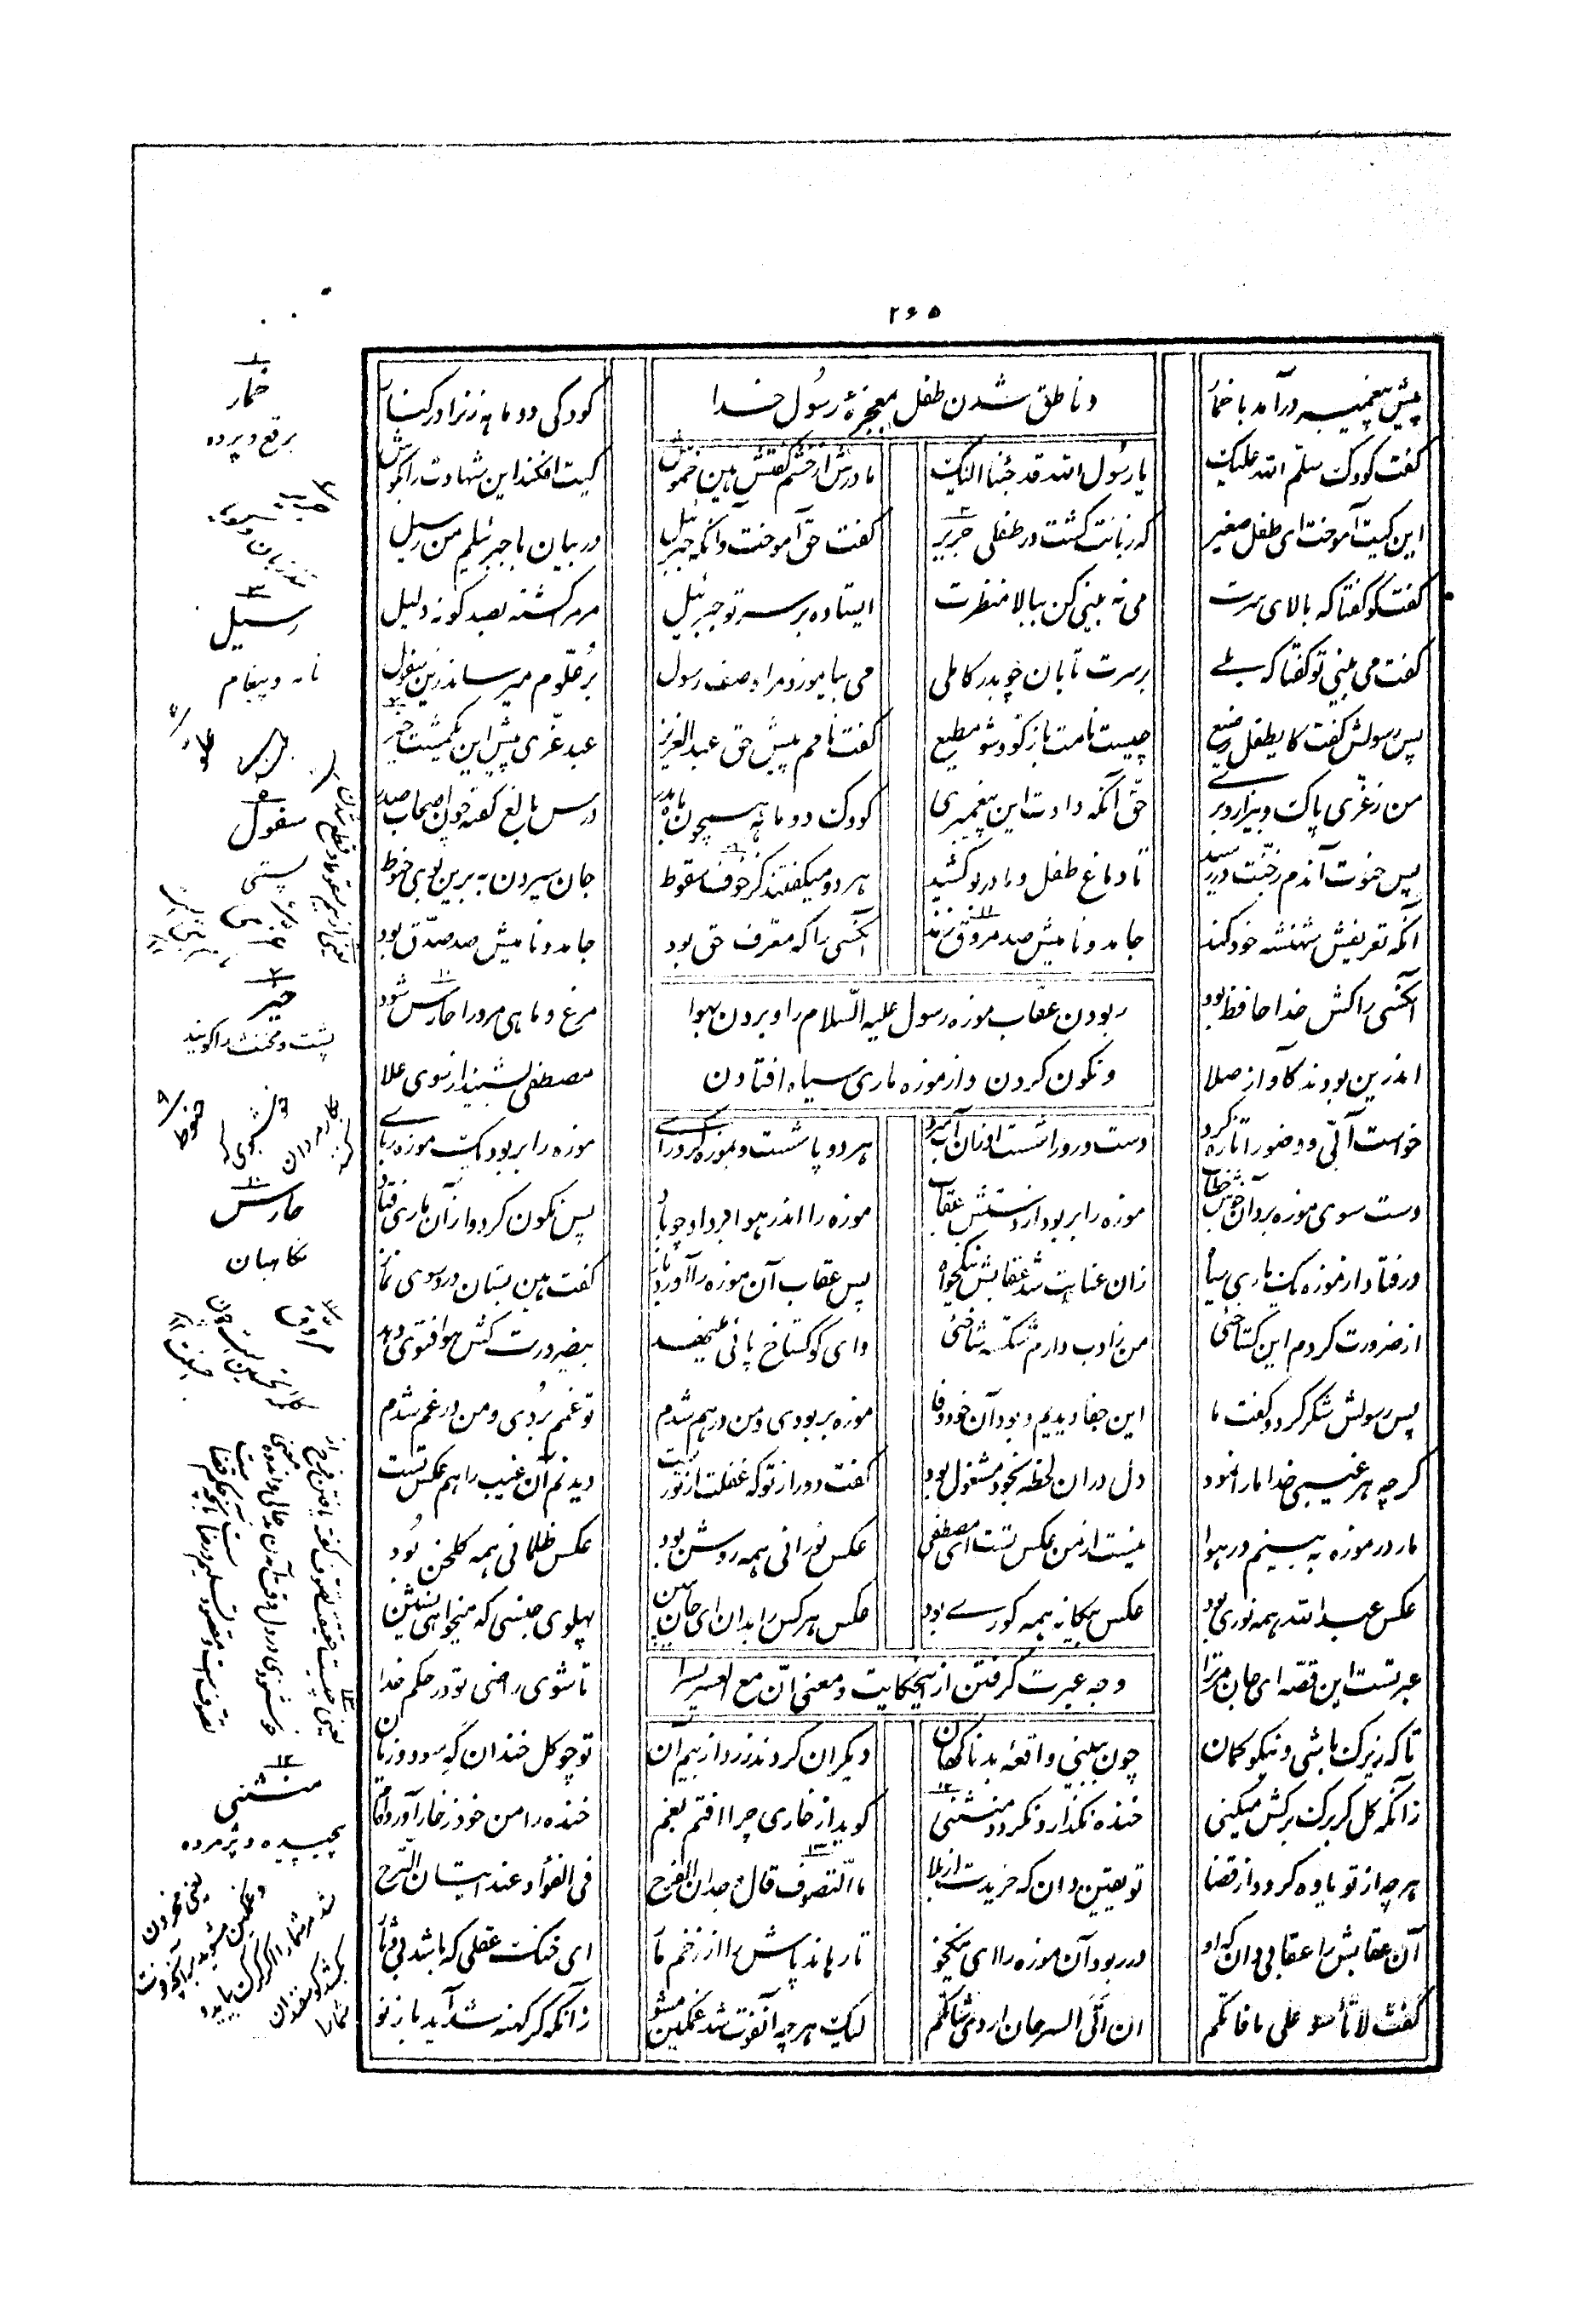 ۲۶۵
پیش پیغمبر درآمد با خمار
و ناطق شدن طفل بمعجزهٔ رسول خدا
کودکی دو ماهه زنرا در کنار
گفت کودک سلم الله علیک
یا رسول الله قد جئنا الیک
مادرش از خشم گفتش هین خموش
کیت افکند این شهادت را بگوش
این کیت آموخت ای طفل صغیر
که زبانت گشت در طفلی جریر
گفت حق آموخت وانگه جبرئیل
در بیان با جبرئیلم من رسیل
گفت کو گفتا که بالای سرت
می نه بینی کن ببالا منظرت
ایستاده بر سر تو جبرئیل
مر مرا گشته بصد گونه دلیل
گفت می بینی تو گفتا که بلے
بر سرت تابان چو بدر کاملی
می بیاموزد مرا وصف رسول
بر علوم میرساند زین سفول
پس رسولش گفت کایطفل رضیع
چیست نامت بازگو و شو مطیع
گفت نامم پیش حق عبد العزیز
عبد عزی پیش این یکمشت حیز
من ز عزی پاک و بیزار و بری
حق آنکه دادت این پیغمبری
کودک دو ماهه همچون ماه بدر
درس بالغ گفته چون اصحاب صدر
پس حنوط آندم ز جنت در رسید
تا دماغ طفل و مادر بو کشید
هر دو میگفتند کز خوف سقوط
جان سپردن به برین بوی حنوط
آنکه تعریفش شهنشه خود کند
جامد و نامیش صد مروق زند
آنکسی را که معرف حق بود
جامد و نامیش صد صدق بود
آنکسی را کش خدا حافظ بود
ربودن عقاب موزه رسول علیه السلام را و بردن بهوا
مرغ و ماهی مر ورا حارس شود
اندرین بودند کاواز صلا
و نگون کردن و از موزه ماری سیاه افتادن
مصطفی بشنید از سوی علا
خواست آبی و وضو را تازه کرد
دست و رو را شست او زان آب سرد
هر دو پا شست و بموزه کرد رای
موزه را بربود یک موزه ربای
دست سوی موزه برد آن خوش خطاب
موزه را بربود از دستش عقاب
موزه را اندر هوا برد او چو باد
پس نگون کرد و از آن ماری فتاد
در فتاد از موزه یک ماری سیاه
زان عنایت شد عقابش نیکخواه
پس عقاب آن موزه را آورد باز
گفت هین بستان و رو سوی نماز
از ضرورت کردم این گستاخئی
من ز ادب دارم شکسته شاخئی
وای کو گستاخ پائی می‌نهد
بیضرورت کش هوا فتوی دهد
پس رسولش شکر کرد و گفت ما
این جفا دیدیم و بود آن خود وفا
موزه بربودی و من درهم شدم
تو غمم بردی و من در غم شدم
گرچه هر غیبی خدا ما را نمود
دل دران لحظه بخود مشغول بود
گفت دور از تو که غفلت از تو رست
دیدنم آن غیب را هم عکس تست
مار در موزه به بینم در هوا
نیست از من عکس تست ای مصطفی
عکس نورانی همه روشن بود
عکس ظلمانی همه گلخن بود
عکس عبد الله همه نوری بود
عکس بیگانه همه کورے بود
عکس هر کس را بدان ای جان ببین
پهلوی جنسی که میخواهی نشین
عبرتست این قصه ای جان مر ترا
وجه عبرت گرفتن از اینحکایت و معنی ان مع العسر یسرا
تا شوی راضی تو در حکم خدا
تا که زیرک باشی و نیکو گمان
چون ببینی واقعهٔ بد ناگهان
دیگران گردند زرد از بیم آن
تو چو گل خندان گه سود و زیان
زانکه گل گر برگ برگش میکنی
خنده نگذارد نگردد منثنی
گوید از خاری چرا افتم بغم
خنده را من خود ز خار آورده‌ام
هر چه از تو یاوه گردد از قضا
تو یقین دان که خریدت از بلا
ما التصوف قال وجدان الفرح
فی الفؤاد عند اتیان الترح
آن عقابش را عقابی دان که او
در ربود آن موزه را ای نیکخو
تا رهاند پاش را از زخم مار
ای خنک عقلی که باشد بی غبار
گفت لا تأسوا علی ما فاتکم
ان اتی السرحان اردی شاتکم
لیک هر چه آنفوت شد غمگین مشو
زانکه گر کهنه شد آید باز نو
۱
خمار
برقع و پرده
۲
جریر
تند زبان
۳
رسیل
نامه و پیغام
۴
علو
بلندی
۵
سفول
پستی
۷
حیز
پشت و مخنث را گویند
۹
حنوط
۱۰
حارس
نگاهبان
۱۱
مروق
۱۲
منثنی
پیچیده و پژمرده